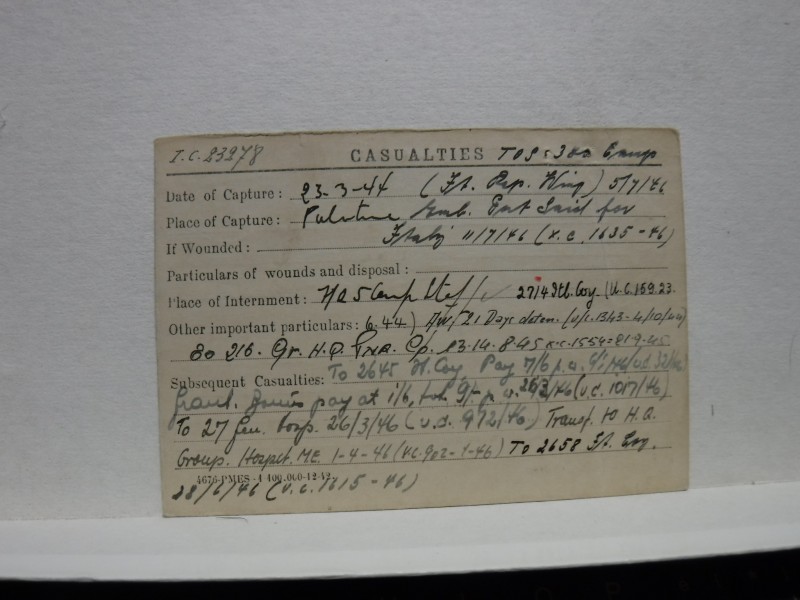 I.C. 23978 CASUALTIES TOS 300 Camp
Date of Capture: 23-3-44 (It. Rep. Wing) 5/7/46
Place of Capture: Palestine Emb. Port Said for
If Wounded: Italy 11/7/46 (U.C. 1635-46)
Particulars of wounds and disposal:
Place of Internment: 2714 Itl. Coy. (U.C. 159.23.
Other important particulars: 6.44) 21 Days deten. (U/C. 1343-4/10/44)
to 216. Gr. H.Q. Cp. 13-14.8.45 U.C. 1554=21.9.45
Subsequent Casualties: To 2645 It. Coy Pay 7/6 p.a. 32/46
pay at 1/6, 9/- p. a. 26/3/46 (U.C. 1017/46)
To 27 Gen. Hosp. 26/3/46 (U.C. 972/46) Transf. to H.Q.
Group. Hospit. ME. 1-4-46 (UC. 902-1-46) To 2658 It. Coy.
4676-PMES-4 400.000-12-42
28/6/46 (U.C. 1615-46)